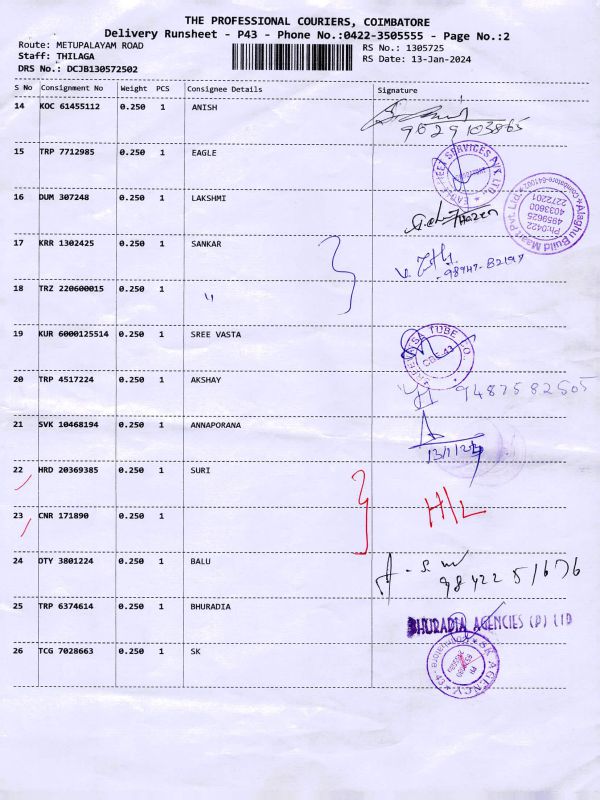 THE PROFESSIONAL COURIERS, COIMBATORE
Delivery Runsheet - P43 - Phone No.:0422-3505555 - Page No.:2
Route: METUPALAYAM ROAD RS No.: 1305725
Staff: THILAGA RS Date: 13-Jan-2024
DRS No.: DCJB130572502
S No Consignment No Weight PCS Consignee Details Signature
14 KOC 61455112 0.250 1 ANISH
9629103865
15 TRP 7712985 0.250 1 EAGLE
16 DUM 307248 0.250 1 LAKSHMI
Alaghu Build Maart Pvt. Ltd. Coimbatore-641002
Ph:0422
4959625
4033600
2272201
17 KRR 1302425 0.250 1 SANKAR
18 TRZ 220600015 0.250 1 "
19 KUR 6000125514 0.250 1 SREE VASTA
CBE-43
20 TRP 4517224 0.250 1 AKSHAY
9487582505
21 SVK 10468194 0.250 1 ANNAPORANA
22 HRD 20369385 0.250 1 SURI
H/L
23 CNR 171890 0.250 1
24 DTY 3801224 0.250 1 BALU
9842251676
25 TRP 6374614 0.250 1 BHURADIA
BHURADIA AGENCIES (P) LTD
26 TCG 7028663 0.250 1 SK
SK AGENCY